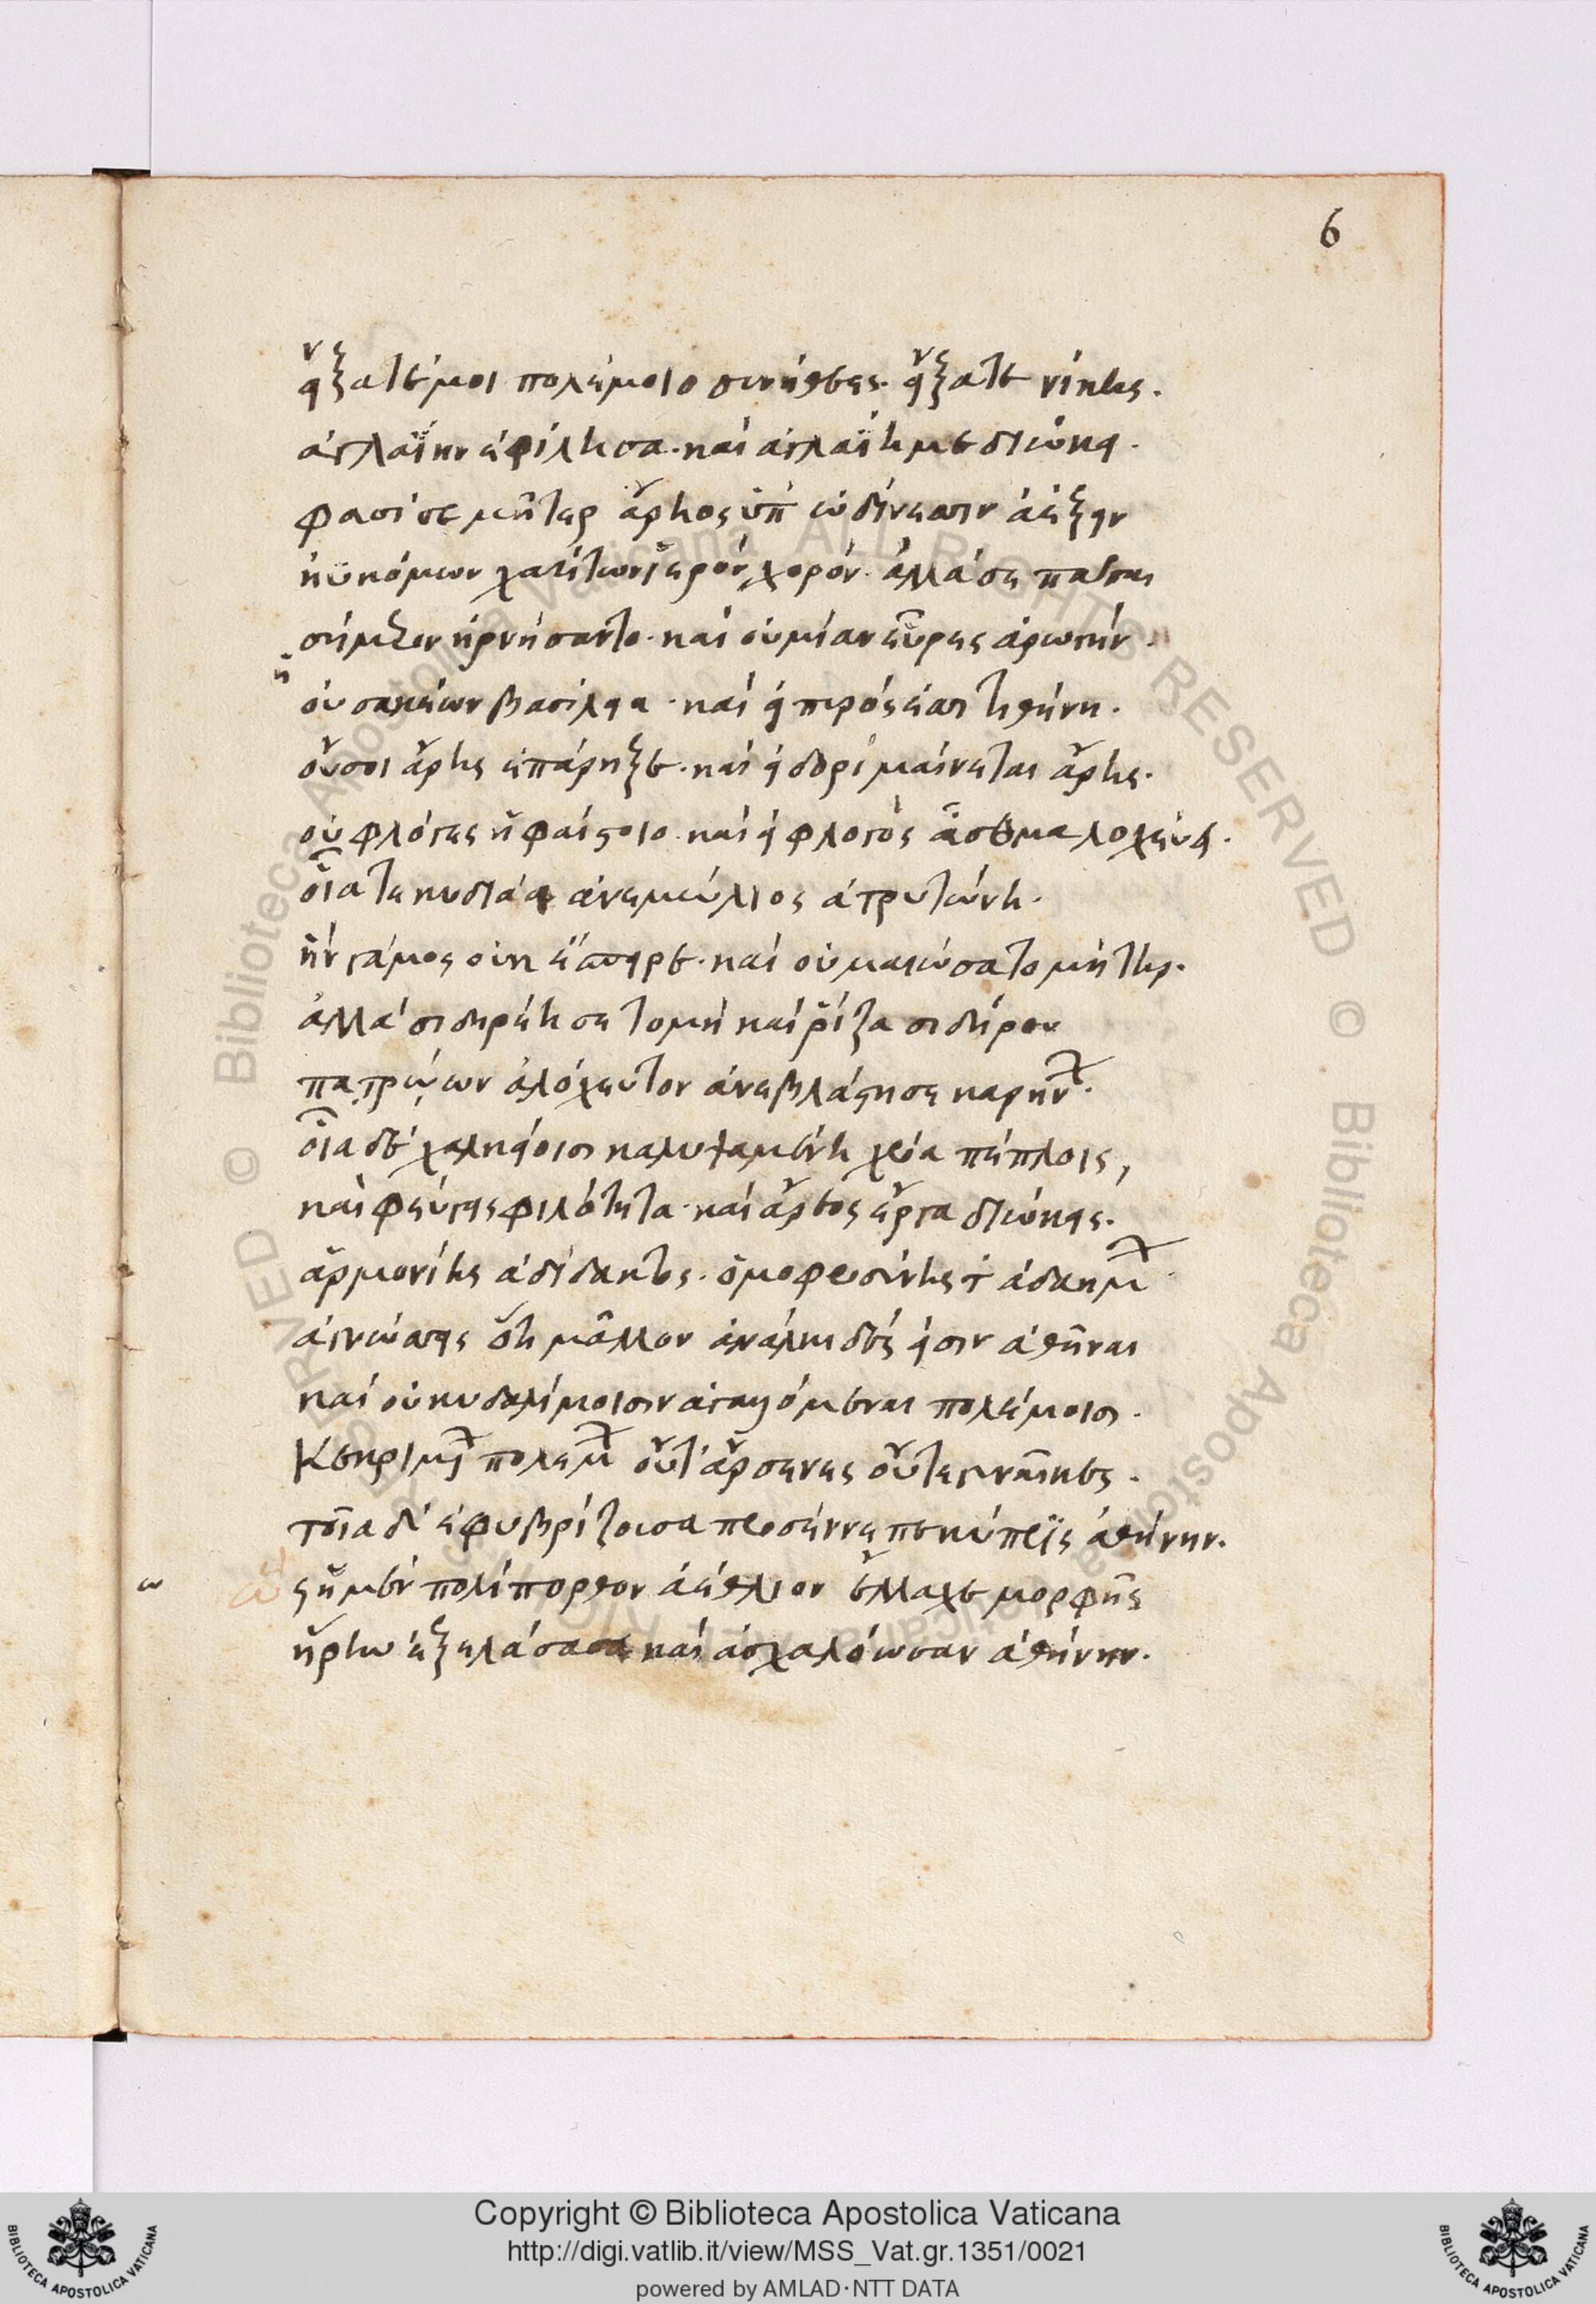 εἴξατέ μοι πολέμοιο συνήθεες. εἴξατε νίκης.
ἀγλαΐην ἐφίλησα. καὶ ἀγλαΐη με διώκει.
φασί σε μῆτερ ἄρηος ὑπ' ὠδίνεσσιν ἀέξειν
ἠϋκόμων χαρίτων ἱερὸν χορόν. ἀλλά σε πᾶσαι
σήμερον ἠρνήσαντο. καὶ οὐ μίαν εὗρες ἀρωγήν.
οὐ σακέων βασίλεια. καὶ εἰ πυρός ἐσσι τιθήνη.
οὔ σοι ἄρης ἐπάρηξε. καὶ εἰ δορὶ μαίνεται ἄρης.
οὐ φλόγες ἡφαίστοιο. καὶ εἰ φλογὸς ἆσθμα λοχεύει.
οἷα τε κυδιάει ἀνεμώλιος ἀτρυτώνη.
ἣν γάμος οὐκ ἔσπειρε. καὶ οὐ μαιώσατο μήτηρ.
ἀλλὰ σιδηρείη σε τομὴ καὶ ῥίζα σιδήρου
πατρῴων ἀλόχευτον ἀνεβλάστησε καρήνων.
οἷα δὲ χαλκείοισι καλυψαμένη χρόα πέπλοις,
καὶ φεύγεις φιλότητα. καὶ ἄρεος ἔργα διώκεις.
ἁρμονίης ἀδίδακτος. ὁμοφροσύνης τ' ἀδαήμων.
ἀγνώσσεις ὅτι μᾶλλον ἀνάλκιδές εἰσιν ἀθῆναι
καὶ οὐ κυδαλίμοισιν ἀγαζόμεναι πολέμοισι.
Κεκριμένων πολέμων οὔτ' ἄρσενες οὔτε γυναῖκες.
τοῖα δ' ἐφυβρίζουσα προσέννεπε κύπρϊς ἀθήνην.
ὣς ἡ μὲν πολίπορθον ἀέθλιον ἔλλαχε μορφῆς
ἥρην ἐξελάσασα καὶ ἀσχαλόωσαν ἀθήνην.
6
Copyright © Biblioteca Apostolica Vaticana
http://digi.vatlib.it/view/MSS_Vat.gr.1351/0021
powered by AMLAD·NTT DATA